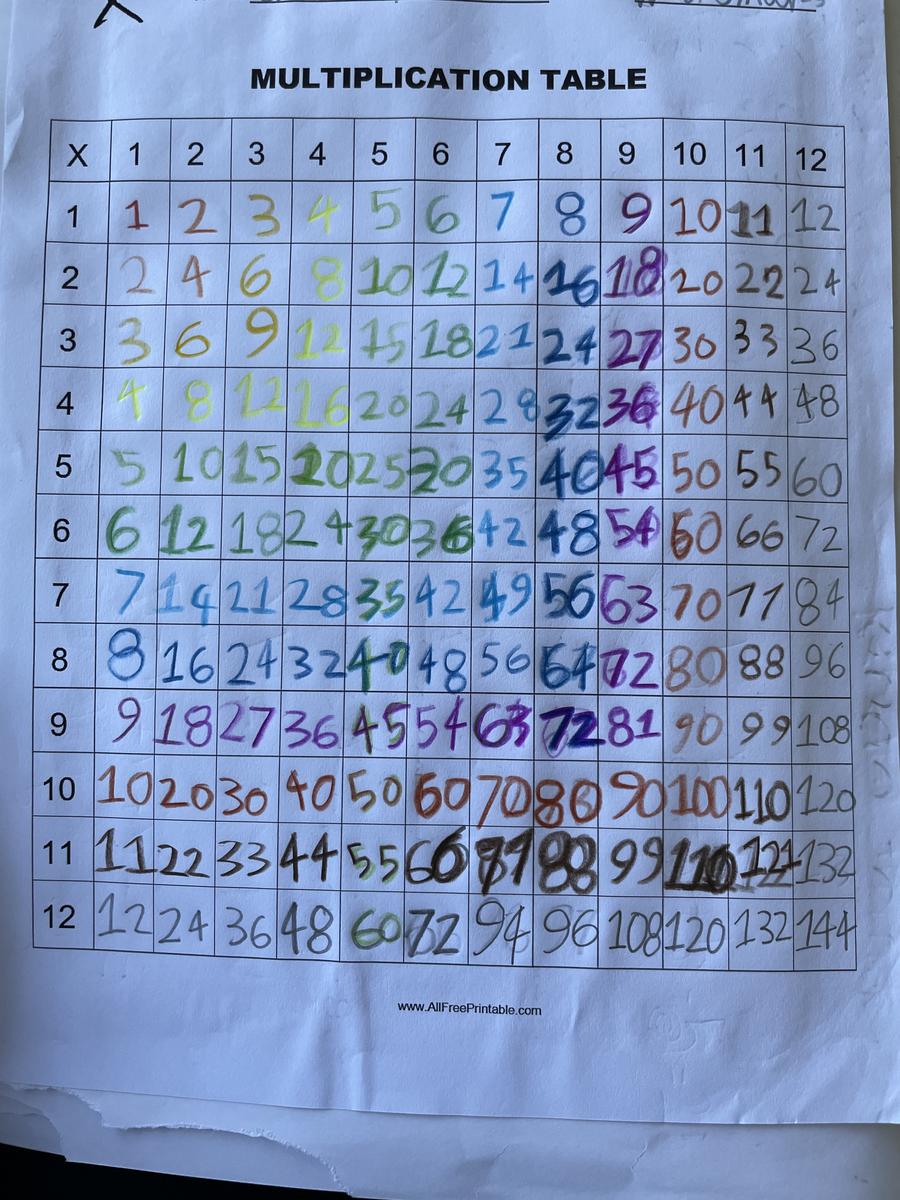 MULTIPLICATION TABLE
X 1 2 3 4 5 6 7 8 9 10 11 12
1 1 2 3 4 5 6 7 8 9 10 11 12
2 2 4 6 8 10 12 14 16 18 20 22 24
3 3 6 9 12 15 18 21 24 27 30 33 36
4 4 8 12 16 20 24 28 32 36 40 44 48
5 5 10 15 20 25 30 35 40 45 50 55 60
6 6 12 18 24 30 36 42 48 54 60 66 72
7 7 14 21 28 35 42 49 56 63 70 77 84
8 8 16 24 32 40 48 56 64 72 80 88 96
9 9 18 27 36 45 54 63 72 81 90 99 108
10 10 20 30 40 50 60 70 80 90 100 110 120
11 11 22 33 44 55 66 88 99 110 121 132
12 12 24 36 48 60 72 94 96 108 120 132 144
www.AllFreePrintable.com